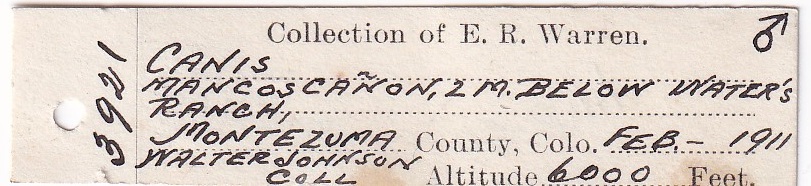 Collection of E. R. Warren. ♂
3921
CANIS
MANCOS CAÑON, 2 M. BELOW WATER'S
RANCH,
MONTEZUMA County, Colo. FEB. - 1911
WALTER JOHNSON
COLL Altitude 6000 Feet.